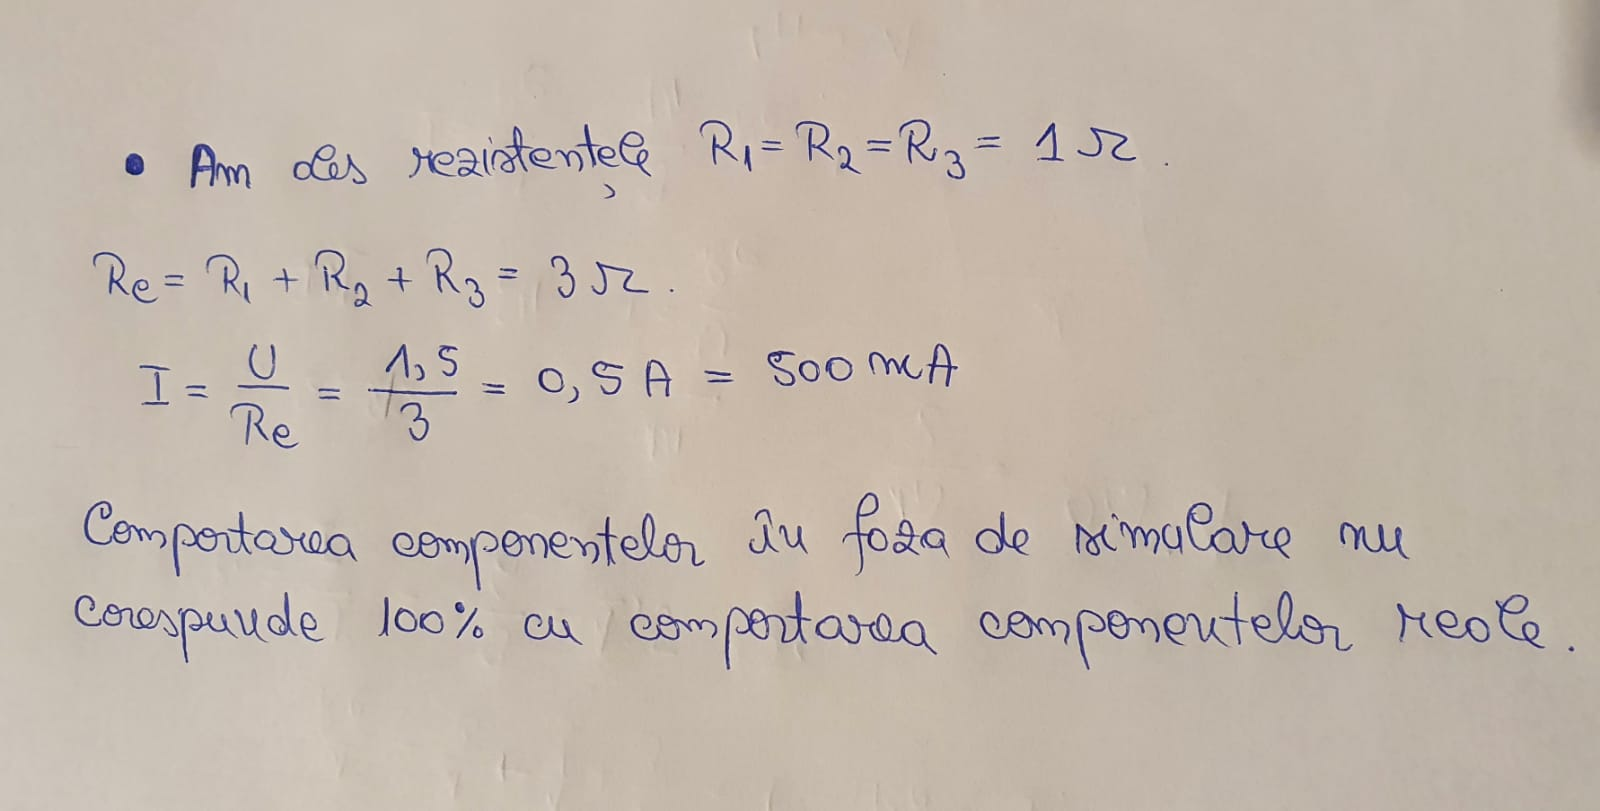 • Am ales rezistențele R₁ = R₂ = R₃ = 1 Ω.
Re = R₁ + R₂ + R₃ = 3 Ω.
I = U/Re = 1,5/3 = 0,5 A = 500 mA
Comportarea componentelor în faza de simulare nu
corespunde 100% cu comportarea componentelor reale.